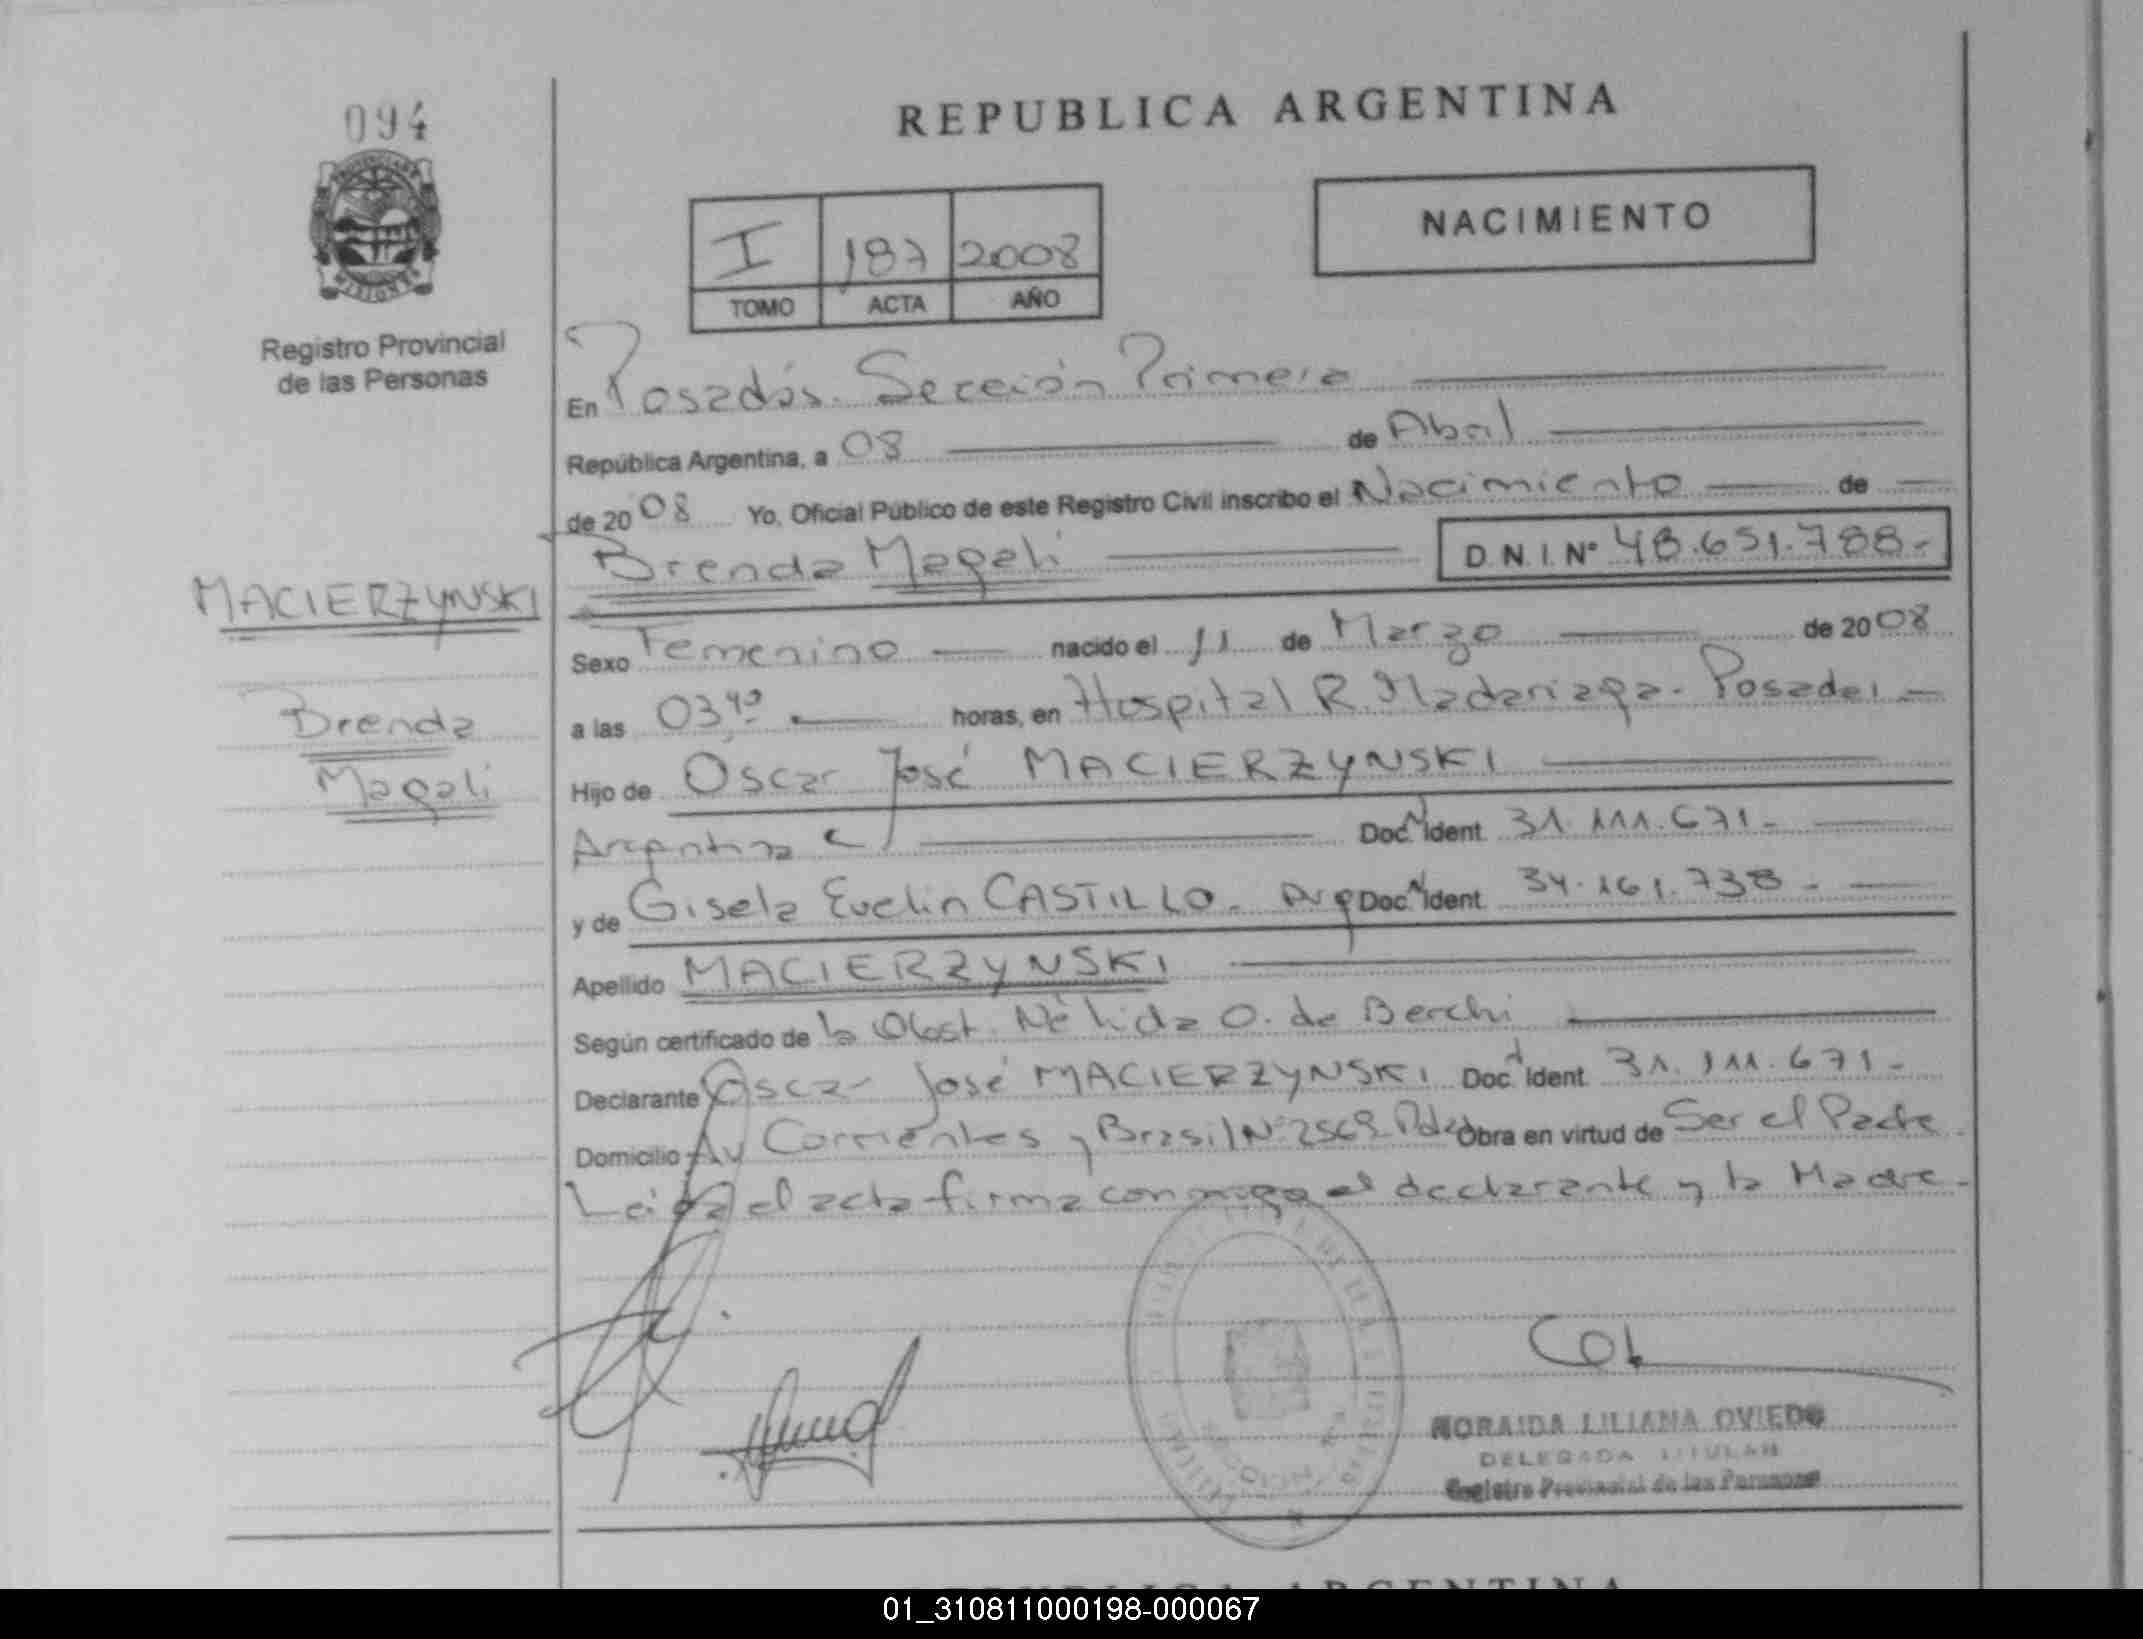 094
REPUBLICA ARGENTINA
PROVINCIA DE
MISIONES
I 187 2008
TOMO ACTA AÑO
NACIMIENTO
Registro Provincial
de las Personas
En Posadas. Sección Primera
República Argentina, a 08 de Abril
de 2008 Yo, Oficial Público de este Registro Civil inscribo el Nacimiento de
Brenda Magali D.N.I. Nº 48.651.788.-
MACIERZYNSKI
Brenda
Magali
Sexo Femenino nacido el 11 de Marzo de 2008
a las 03,40 horas, en Hospital R. Madariaga - Posadas
Hijo de Oscar José MACIERZYNSKI
Argentina Doc. Ident. 31.111.671-
y de Gisela Evelin CASTILLO. Arg Doc. Ident. 34.161.738.-
Apellido MACIERZYNSKI
Según certificado de la Obst. Nélida O. de Berchi
Declarante Oscar José MACIERZYNSKI Doc. Ident. 31.111.671-
Domicilio Av Corrientes y Brasil Nº 2569 Pdas Obra en virtud de Ser el Padre
Leida el acta firma conmigo el declarante y la Madre-
NORAIDA LILIANA OVIEDO
DELEGADA TITULAR
Registro Provincial de las Personas
REPUBLICA ARGENTINA
01_310811000198-000067